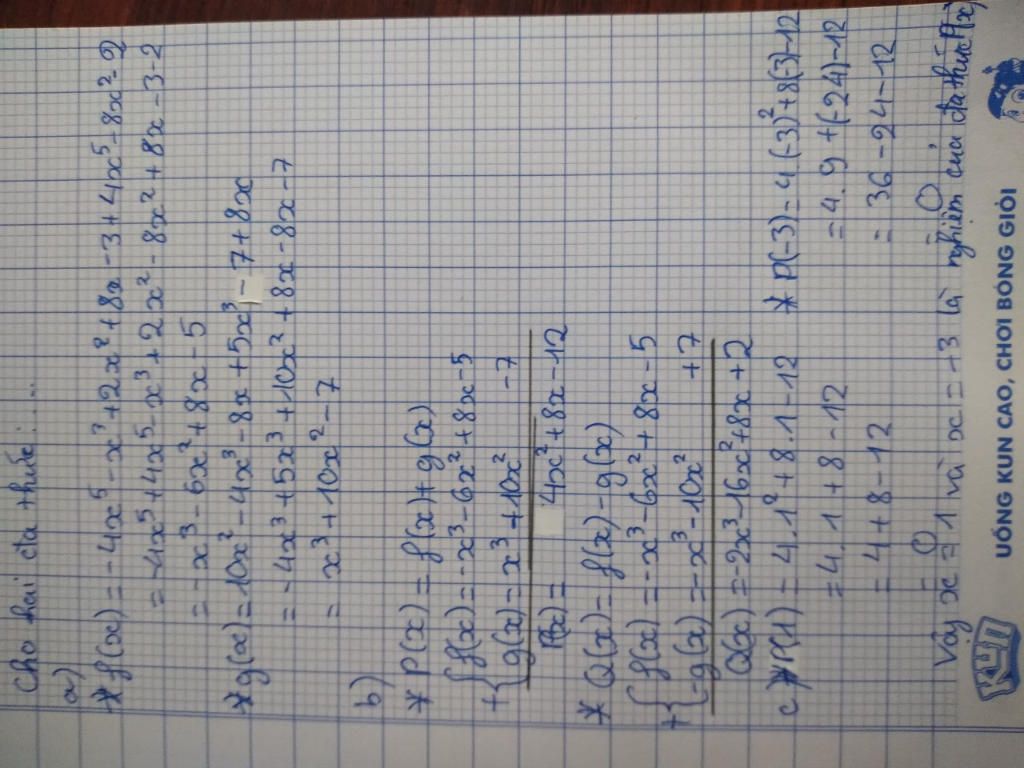 Cho hai đa thức: ...
a)
* f(x) = -4x⁵ - x³ + 2x² + 8x - 3 + 4x⁵ - 8x² - 2
= -4x⁵ + 4x⁵ - x³ + 2x² - 8x² + 8x - 3 - 2
= -x³ - 6x² + 8x - 5
* g(x) = 10x² - 4x³ - 8x + 5x³ - 7 + 8x
= -4x³ + 5x³ + 10x² + 8x - 8x - 7
= x³ + 10x² - 7
b)
* P(x) = f(x) + g(x)
+ { f(x) = -x³ - 6x² + 8x - 5
g(x) = x³ + 10x² - 7
P(x) = 4x² + 8x - 12
* Q(x) = f(x) - g(x)
+ { f(x) = -x³ - 6x² + 8x - 5
-g(x) = -x³ - 10x² + 7
Q(x) = -2x³ - 16x² + 8x + 2
c) * P(1) = 4.1² + 8.1 - 12
= 4.1 + 8 - 12
= 4 + 8 - 12
= 0
* P(-3) = 4.(-3)² + 8(-3) - 12
= 4.9 + (-24) - 12
= 36 - 24 - 12
= 0
Vậy x = 1 và x = -3 là nghiệm của đa thức P(x)
KUN UỐNG KUN CAO, CHƠI BÓNG GIỎI